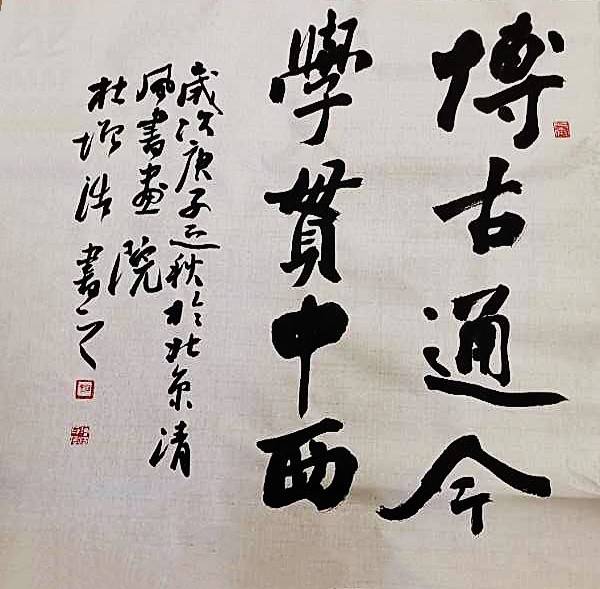 博古通今
學貫中西
歲次庚子之秋於北京清
風書畫院
杜增浩書之